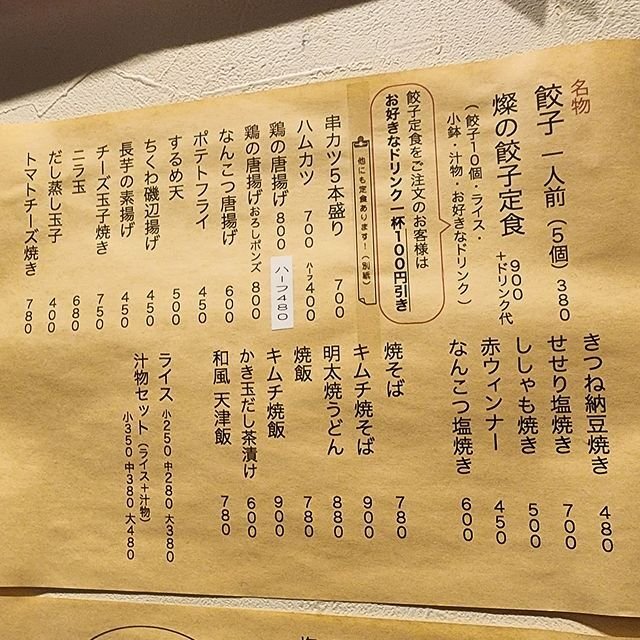 名物
餃子 一人前（5個）380
燦の餃子定食 900 ＋ドリンク代
（餃子10個・ライス・
小鉢・汁物・お好きなドリンク）
餃子定食をご注文のお客様は
お好きなドリンク一杯100円引き
他にも定食あります！（別紙）
串カツ5本盛り 700
ハムカツ 700 ハーフ400
鶏の唐揚げ 800 ハーフ480
鶏の唐揚げおろしポンズ 800
なんこつ唐揚げ 600
ポテトフライ 450
するめ天 500
ちくわ磯辺揚げ 450
長芋の素揚げ 450
チーズ玉子焼き 750
ニラ玉 680
だし蒸し玉子 400
トマトチーズ焼き 780
きつね納豆焼き 480
せせり塩焼き 700
ししゃも焼き 500
赤ウィンナー 450
なんこつ塩焼き 600
焼そば 780
キムチ焼そば 900
明太焼うどん 880
焼飯 780
キムチ焼飯 900
かき玉だし茶漬け 600
和風 天津飯 780
ライス 小250 中280 大380
汁物セット（ライス＋汁物）
小350 中380 大480